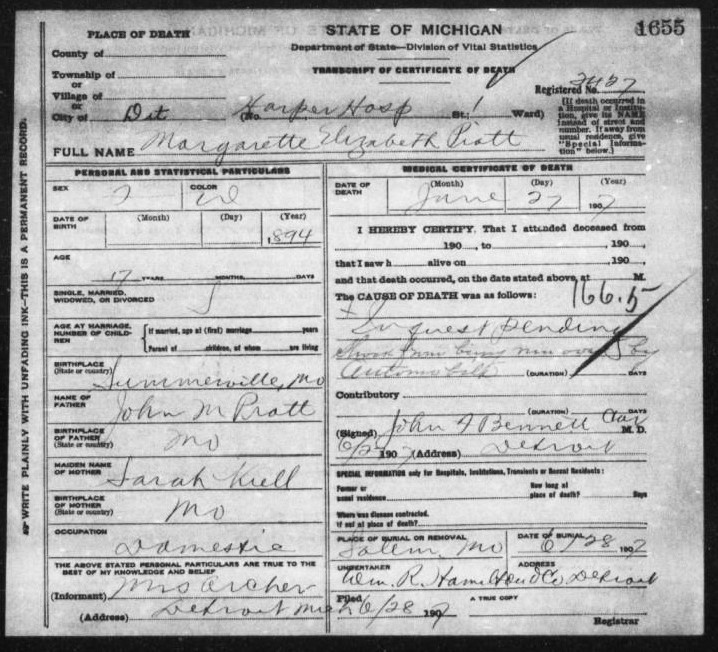 1655
PLACE OF DEATH
County of
Township of
or
Village of
or
City of Det
STATE OF MICHIGAN
Department of State—Division of Vital Statistics
TRANSCRIPT OF CERTIFICATE OF DEATH
Registered No.
(No. Harper Hosp St. 1 Ward)
(If death occurred in a Hospital or Institution, give its NAME instead of street and number. If away from usual residence, give "Special Information" below.)
FULL NAME Margarette Elizabeth Pratt
WRITE PLAINLY WITH UNFADING INK—THIS IS A PERMANENT RECORD.
PERSONAL AND STATISTICAL PARTICULARS
SEX F COLOR W
DATE OF BIRTH (Month) (Day) (Year)
1894
AGE
17 YEARS MONTHS, DAYS
SINGLE, MARRIED, WIDOWED, OR DIVORCED S
AGE AT MARRIAGE, NUMBER OF CHILDREN
If married, age at (first) marriage years
Parent of children, of whom are living
BIRTHPLACE (State or country) Summerville, Mo
NAME OF FATHER John M Pratt
BIRTHPLACE OF FATHER (State or country) Mo
MAIDEN NAME OF MOTHER Sarah Krell
BIRTHPLACE OF MOTHER (State or country) Mo
OCCUPATION Domestic
THE ABOVE STATED PERSONAL PARTICULARS ARE TRUE TO THE BEST OF MY KNOWLEDGE AND BELIEF
(Informant) Mrs Archer
(Address) Detroit Mich
MEDICAL CERTIFICATE OF DEATH
DATE OF DEATH (Month) (Day) (Year)
June 27 1907
I HEREBY CERTIFY, That I attended deceased from
190 , to 190 ,
that I saw h alive on , 190 ,
and that death occurred, on the date stated above, at M.
The CAUSE OF DEATH was as follows: 166.5
Inquest pending
Shock from being run over by
Automobile (DURATION) DAYS
Contributory
(DURATION) DAYS
(Signed) John Bennett M. D.
190 (Address) Detroit
SPECIAL INFORMATION only for Hospitals, Institutions, Transients or Recent Residents:
Former or usual residence How long at place of death? Days
Where was disease contracted, if not at place of death?
PLACE OF BURIAL OR REMOVAL Salem, Mo
DATE OF BURIAL 6/28 1907
UNDERTAKER Wm. R. Hamilton & Co
ADDRESS Detroit
Filed 6/28 1907
A TRUE COPY
Registrar